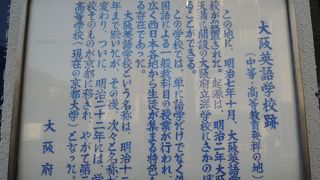 大阪英語学校跡
（中等・高等教育発祥の地）
この地に、明治七年十月、大阪英語
校が設置された。起源は、明治二年大阪
天満に開設の大阪府立洋学校にさかの
ことができる。
この学校では、単に語学だけでなく
国語による一般教科の授業が行われ
広く西日本各地から生徒が集まる特色
る存在であった。
大阪英語学校という名称は、明治十
年まで続いたが、その後、次々と名称
変わり、ついに、明治二十二年には、学
校そのものが京都に移され、やがて第
高等学校（現在の京都大学）となった。
大阪府